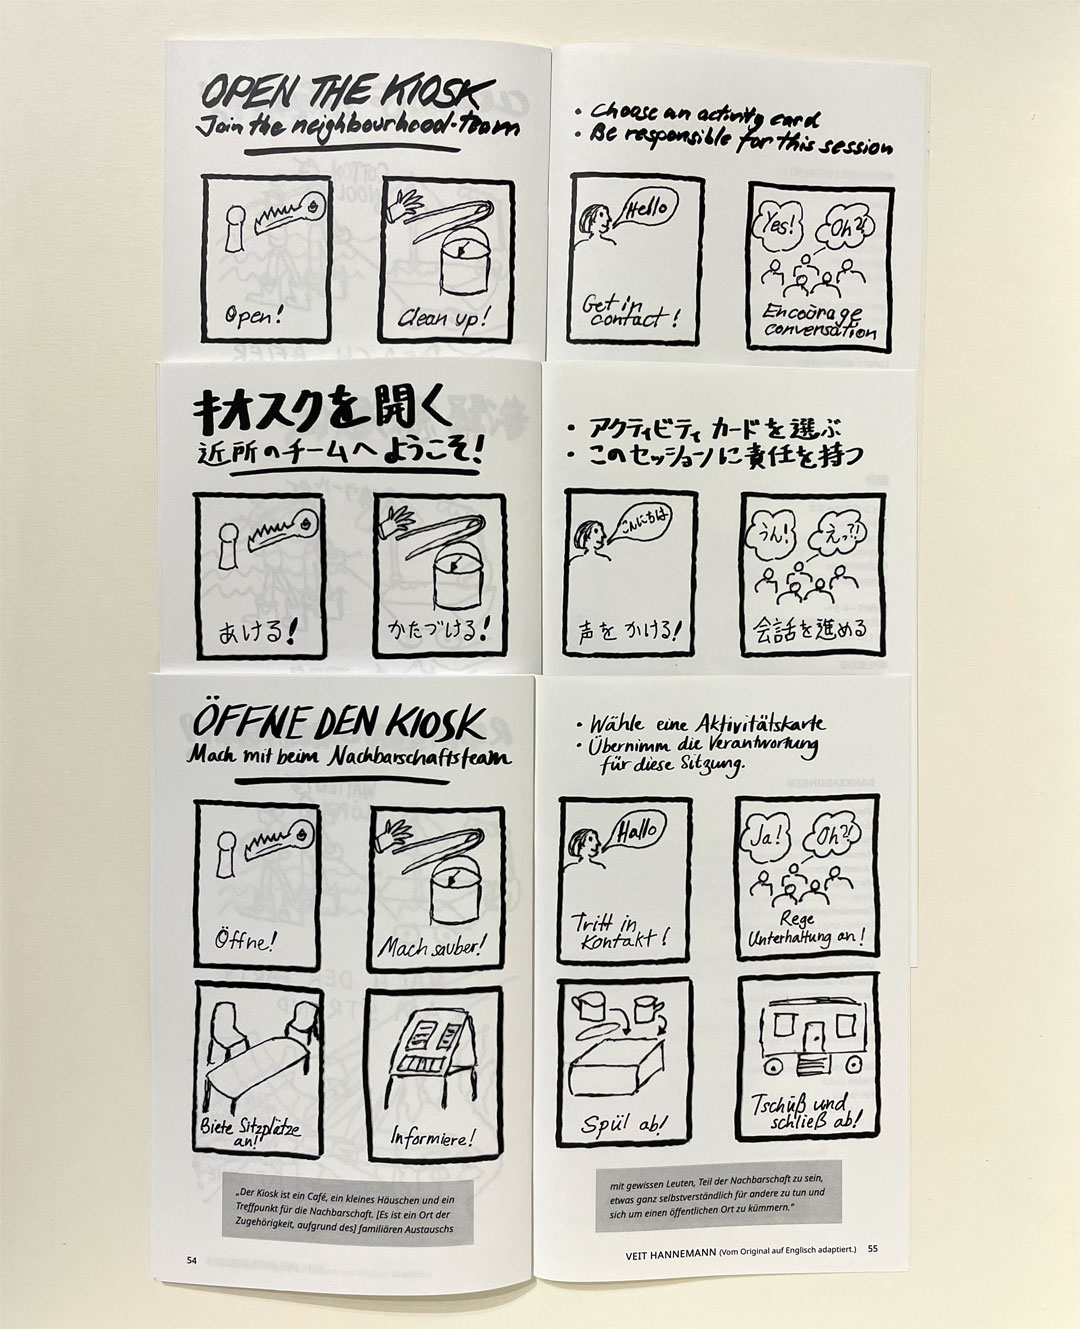 OPEN THE KIOSK
Join the neighbourhood-team
Open!
Clean up!
• Choose an activity card
• Be responsible for this session
Hello
Get in
contact!
Yes!
Oh?!
Encourage
conversation
キオスクを開く
近所のチームへようこそ!
あける!
かたづける!
• アクティビティ カードを選ぶ
• このセッションに責任を持つ
こんにちは
声をかける!
うん!
えっ?!
会話を進める
ÖFFNE DEN KIOSK
Mach mit beim Nachbarschaftsteam
Öffne!
Mach sauber!
Biete Sitzplätze
an!
Informiere!
„Der Kiosk ist ein Café, ein kleines Häuschen und ein
Treffpunkt für die Nachbarschaft. [Es ist ein Ort der
Zugehörigkeit, aufgrund des] familiären Austauschs
54
• Wähle eine Aktivitätskarte
• Übernimm die Verantwortung
für diese Sitzung.
Hallo
Tritt in
Kontakt!
Ja!
Oh?!
Rege
Unterhaltung an!
Spül ab!
Tschüß und
schließ ab!
mit gewissen Leuten, Teil der Nachbarschaft zu sein,
etwas ganz selbstverständlich für andere zu tun und
sich um einen öffentlichen Ort zu kümmern.“
VEIT HANNEMANN (Vom Original auf Englisch adaptiert.) 55